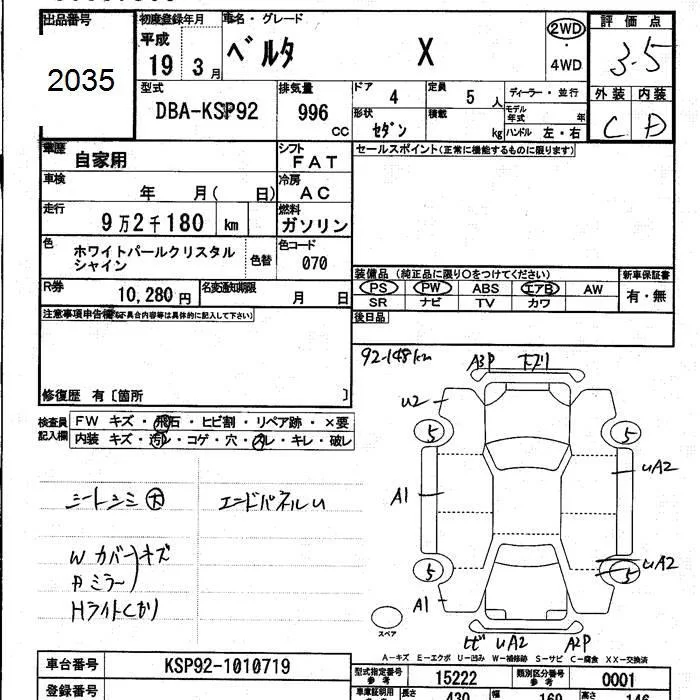 出品番号
2035
初度登録年月
平成
19 3月
車名・グレード
ベルタ X
2WD
・
4WD
評価点
3.5
外装 内装
C D
型式
DBA-KSP92
排気量
996 CC
ドア 4
定員 5 人
ディーラー・並行
形状 セダン
積載 kg
モデル年式 年
ハンドル 左・右
車歴 自家用
シフト FAT
セールスポイント(正常に機能するものに限ります)
車検 年 月( 日)
冷房 AC
走行 9万2千180 km
燃料 ガソリン
色 ホワイトパールクリスタル
シャイン
色替
色コード 070
装備品 (純正品に限り○をつけてください)
新車保証書
PS PW ABS エアB AW
有・無
SR ナビ TV カワ
R券 10,280円
名変通知期限 月 日
後日品
注意事項申告欄(不具合内容等は具体的に記入して下さい)
修復歴 有〔箇所 〕
92-148km
A3P
U2
5 5
UA2
A1
UA2
5 5
A1
スペア
UA2 A2P
検査員
記入欄
FW キズ・飛石・ヒビ割・リペア跡・×要
内装 キズ・汚レ・コゲ・穴・スレ・キレ・破レ
シートシミ大
エンドパネルU
W カバー キズ
P ミラー
Hライトくもり
A-キズ E-エクボ U-凹み W-補修跡 S-サビ C-腐食 XX-交換済
車台番号 KSP92-1010719
型式指定番号
参考
15222
類別区分番号
参考
0001
登録番号
車庫証明用
長さ 430 幅 160 高さ 146